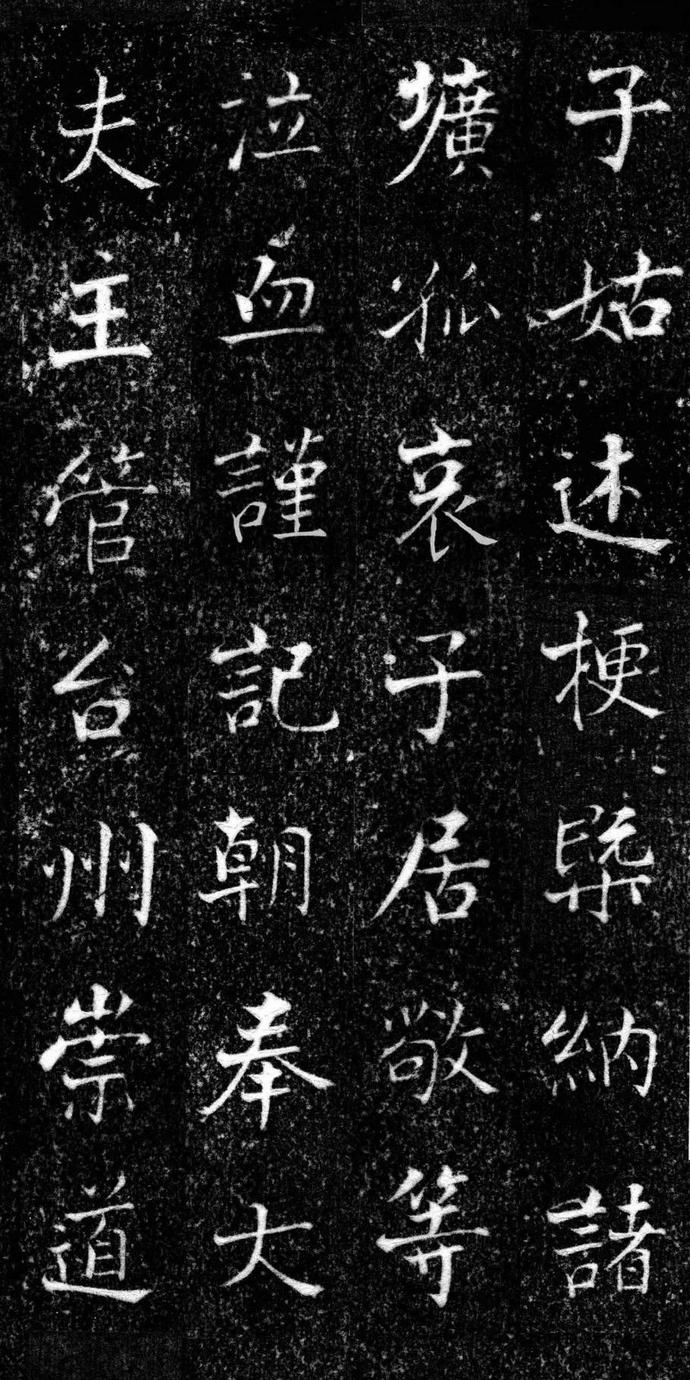 子姑述梗槩納諸
壙孤哀子居敬等
泣血謹記朝奉大
夫主管台州崇道